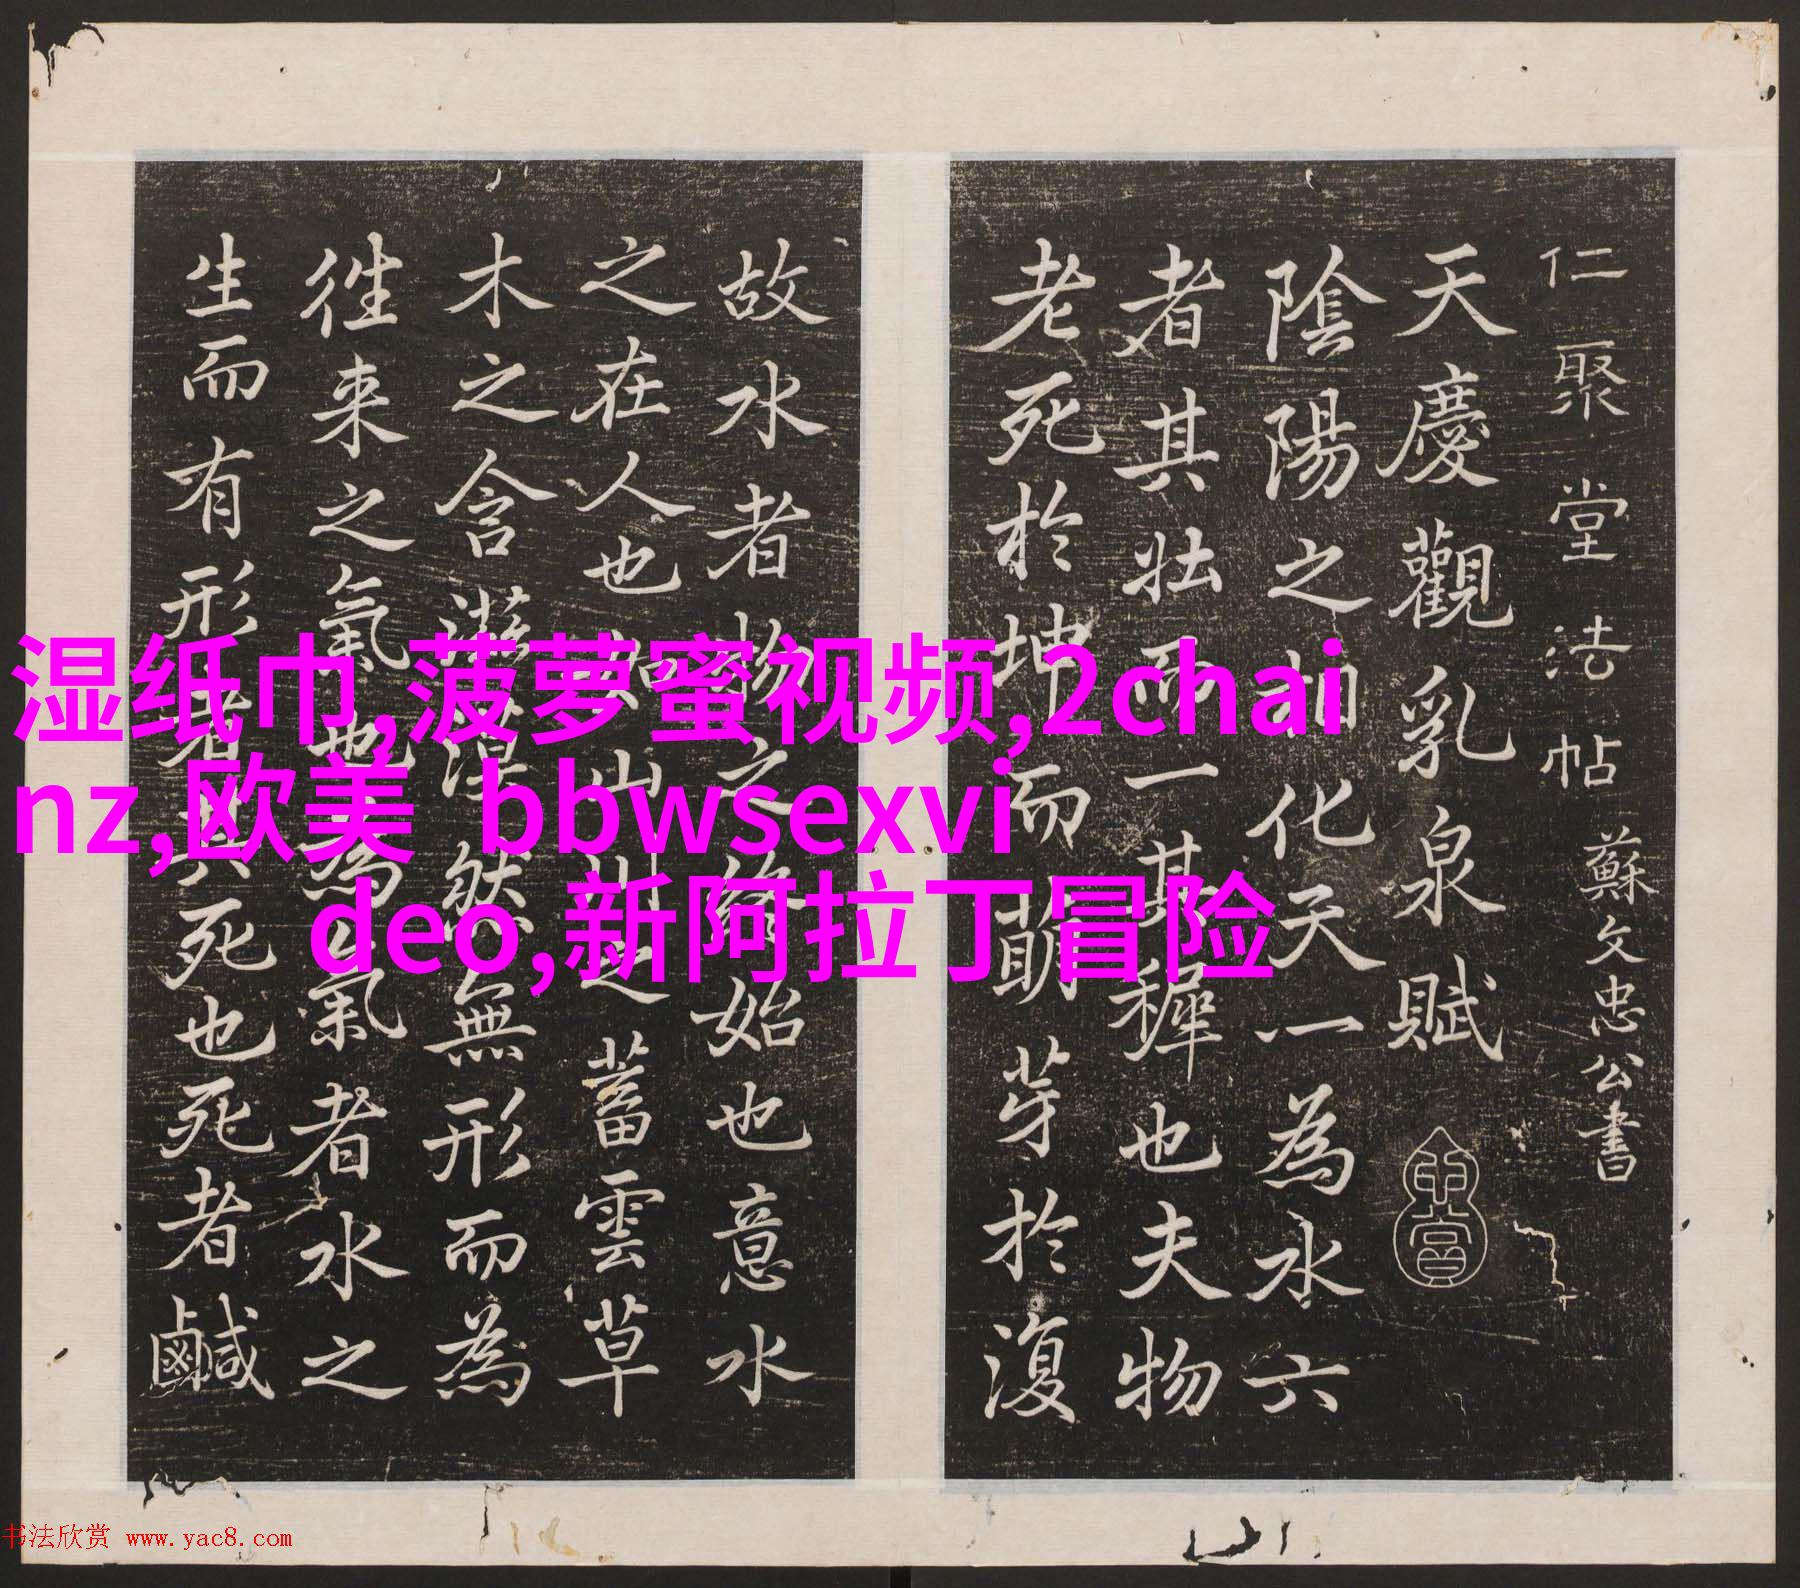 仁聚堂法帖 蘇文忠公書
天慶觀乳泉賦
陰陽之相化天一為水六
者其壯而一其穉也夫物
老死於坤而萌芽於復
故水者物之終始也意水
之在人也如山川之蓄雲草
木之含滋然無形而為
徃来之氣也為氣者水之
生而有形者其死也死者鹹
湿纸巾,菠萝蜜视频,2chai
nz,欧美 bbwsexvi
deo,新阿拉丁冒险
书法欣赏 www.yac8.com